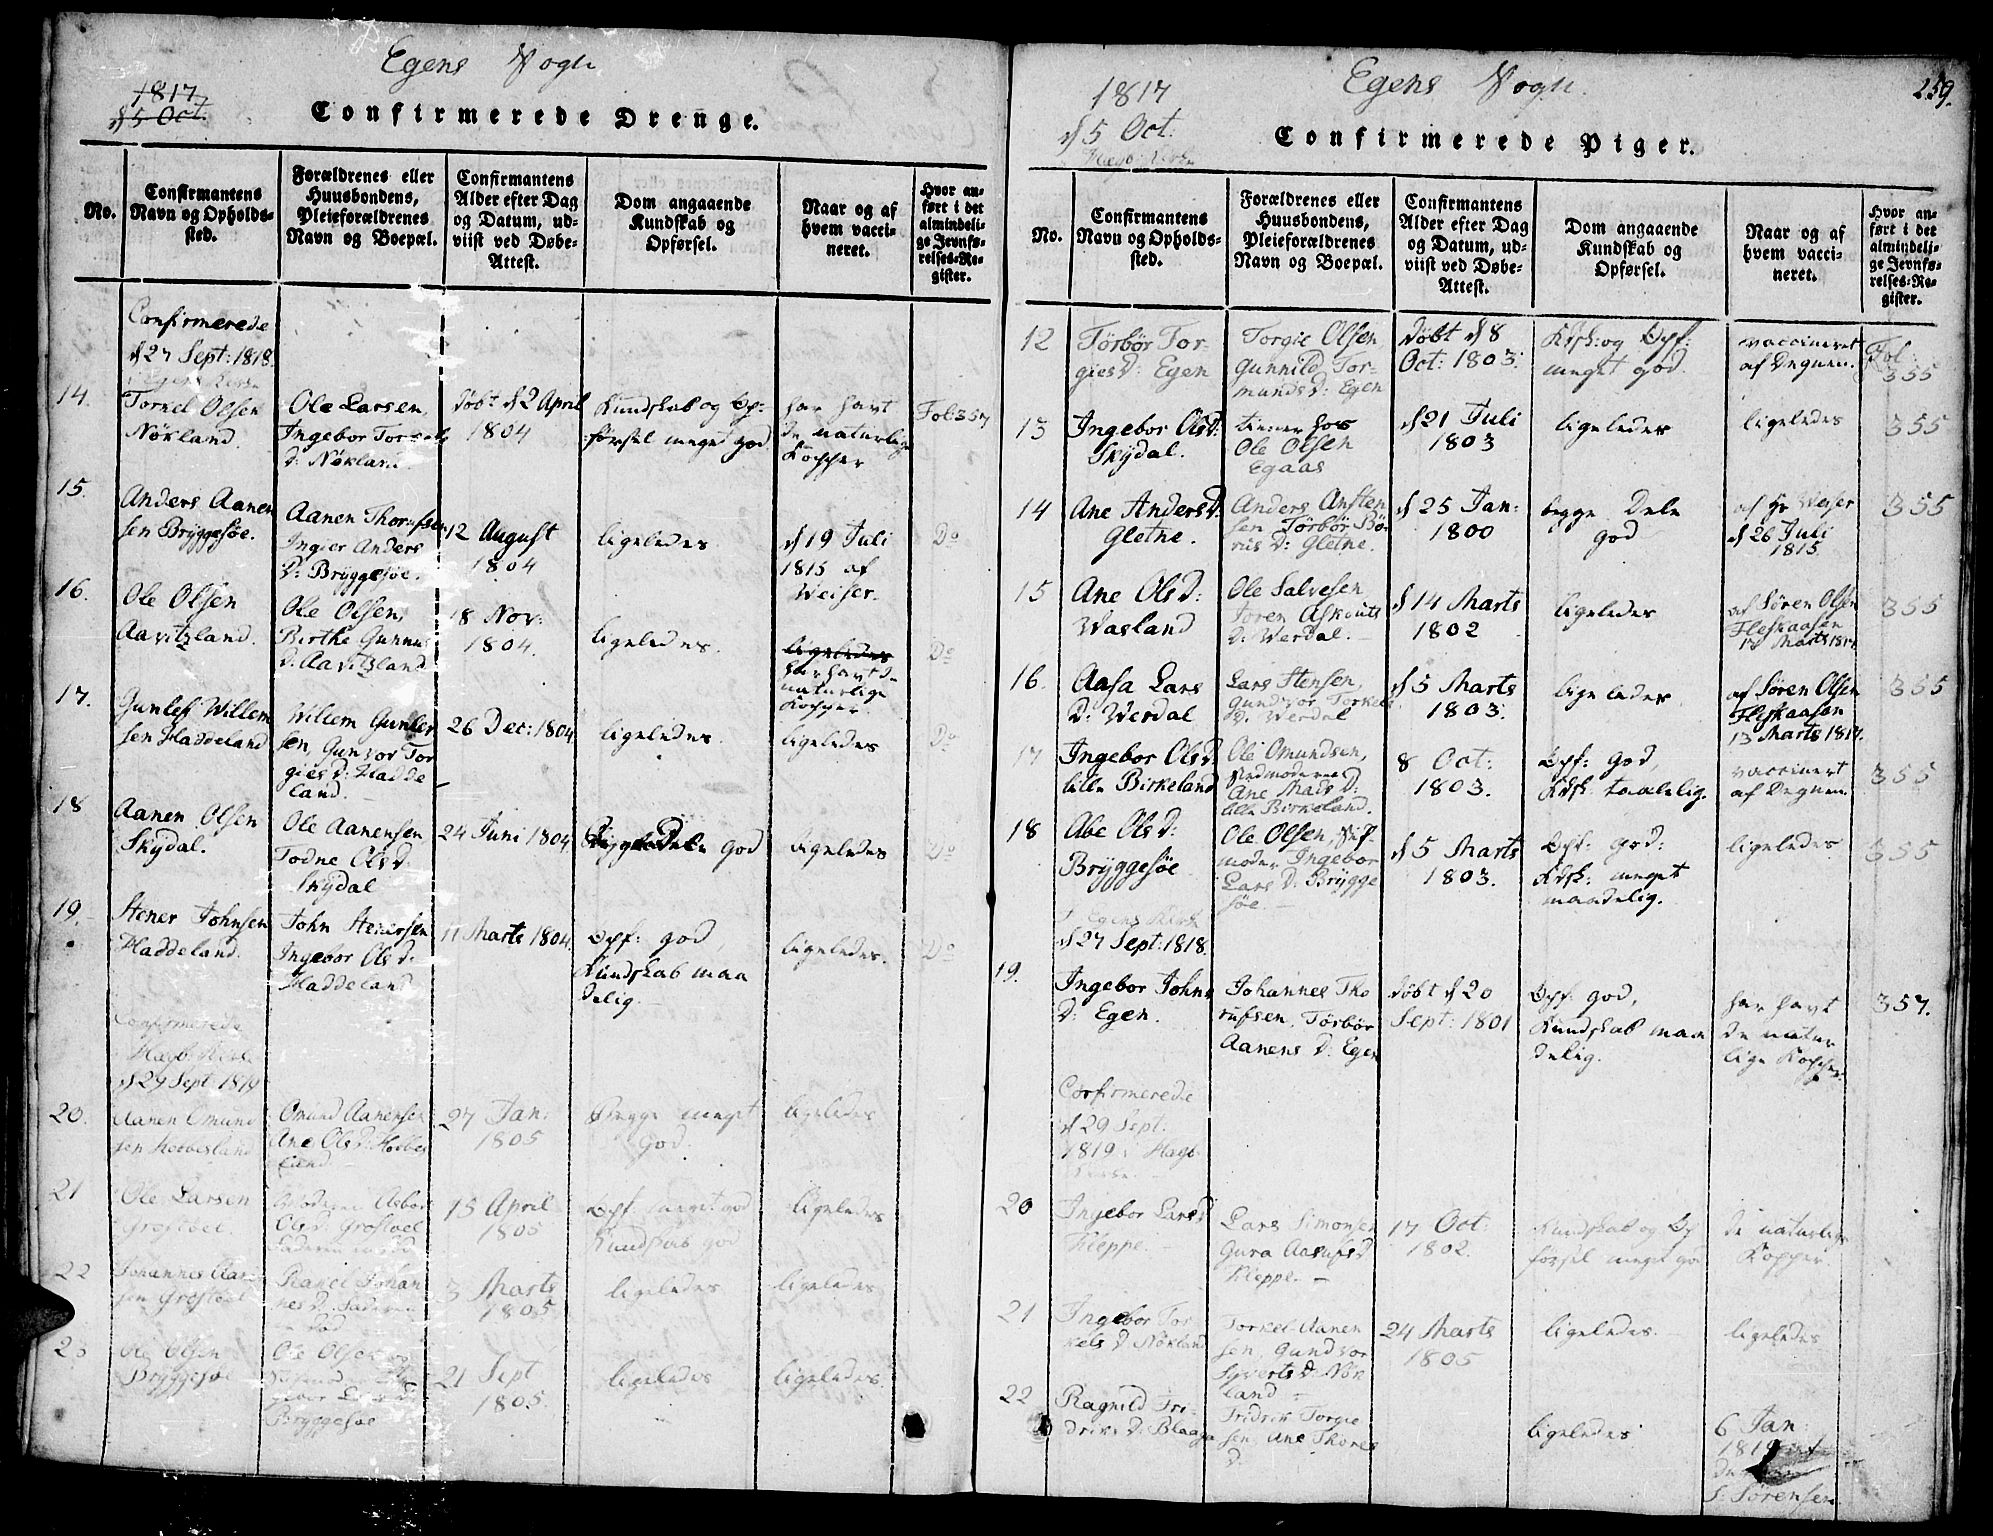 Egens Sogn
1817
d 5 Oct.
Confirmerede Drenge.
No.
Confirmantens
Navn og Opholds-
sted.
Forældrenes eller
Huusbondens,
Pleieforældrenes
Navn og Boepæl.
Confirmantens
Alder efter Dag
og Datum, ud-
viist ved Døbe-
Attest.
Dom angaaende
Kundskab og
Opførsel.
Naar og af
hvem vacci-
neret.
Hvor an-
ført i det
almindeli-
ge Jevnfø-
relses-Re-
gister.
Confirmerede
d 27 Sept: 1818.
i Egens Kirke
14.
Torkel Olsen
Nökland.
Ole Larsen,
Ingebor Torkels
D: Nökland.
döbt d 2 April
1804
Kundskab og Op:
førsel meget god
har havt
de naturlige
Kopper
Fol: 357
15.
Anders Aanen
sen Bryggesøe.
Aanen Thorufsen
Ingier Anders
D: Bryggesøe.
12 August
1804
ligeledes.
d 19 Juli
1815 af
Weiser.
Do
16.
Ole Olsen
Aavitzland.
Ole Olsen,
Birthe Gunnus
D: Aavitzland
18 Nov:
1804.
ligeledes.
ligeledes
har havt d-
naturlige
Kopper
Do
17.
Gunlef Willem
sen Haddeland
Willem Gunlef
sen, Gunvor Tor
gies D: Hadde
land.
26 Dec: 1804
ligeledes.
ligeledes
Do
18
Aanen Olsen
Skydal.
Ole Aanensen
Todne Ols D:
Skydal
24 Juni 1804.
god
ligeledes
Do
19.
Stener Johnsen
Haddeland.
John Stenersen
Ingebor Ols D:
Haddeland
11 Marts 1804.
Opf: god,
Kundskab maa
delig.
ligeledes.
Do
Confirmerede
Hægb: Kirke
d 29 Sept 1819
20.
Aanen Omund
sen Hobbesland
Omund Aanensen
Ane Ols D: Hobbes
land
27 Jan:
1805
Begge meget
god.
ligeledes
21
Ole Larsen
Grostøel.
Moderen Asbor
Ols D Grostøel
Faderen død
15 April
1805
Opf: meget god
Kundskab god
ligeledes
22
Johannes Aan
sen Grostøel
Rakel Johan
nes D: Faderen
død
3 Marts
1805
ligeledes
ligeledes
23
Ole Olsen
Bryggesøe
Ole Olsen
gebor Lars D
Bryggesøe
21 Sept
1805.
ligeledes
ligeledes.
Egens Sogn.
259.
1817
d 5 Oct:
Hægb: Kirke
Confirmerede Piger.
No.
Confirmantens
Navn og Opholds-
sted.
Forældrenes eller
Huusbondens,
Pleieforældrenes
Navn og Boepæl.
Confirmantens
Alder efter Dag
og Datum, ud-
viist ved Døbe-
Attest.
Dom angaaende
Kundskab og
Opførsel.
Naar og af
hvem vacci-
neret.
Hvor an-
ført i det
almindeli-
ge Jevnfø-
relses-Re-
gister.
12
Törbör Tor-
gies D: Egen
Torgie Olsen,
Gunnild Tor-
munds D: Egen
döbt d 8
Oct: 1803.
Kdsk: og Opf:
meget god.
vaccineret
af Degnen.
Fol:
355
13
Ingebor Ols D:
Skydal.
tiener hos
Ole Olsen
Egaas
d 21 Juli
1803
ligeledes
ligeledes
355
14
Ane Anders D:
Gletne.
Anders Ansten
sen Törbör Bör
rus D: Gletne.
d 25 Jan:
1800
begge Dele
god
af Hr Weiser
d 26 Juli
1815
355
15
Ane Ols D:
Wasland
Ole Salvesen
Joren Askouts
D: Werdal.
d 14 Marts
1802
ligeledes
af Søren Olsen
Fleskaasen
13 Marts 1817.
355
16.
Aasa Lars
D: Werdal
Lars Stensen,
Gundvor Torkels
D. Werdal
d 5 Marts
1803.
ligeledes
af Søren Olsen
Fleskaasen
13 Marts 1817.
355
17
Ingebor Ols D:
lille Birkeland
Ole Omundsen,
Stedmoderen
Ane Mads D:
lille Birkeland.
8 Oct:
1803.
Opf: god,
Kdsk: taalelig.
vaccinert
af Degnen.
355
18
Abe Ols D:
Bryggesøe
Ole Olsen, Stif-
moder Ingebor
Lars D: Brygge
søe.
d 5 Marts
1803.
Opf: god:
Kdsk: meget
maadelig.
ligeledes
355
I Egens Kirke
d 27 Sept: 1818.
19.
Ingebor Johns
D: Egen.
Johannes Tho
rufsen, Törbör
Aanens D: Egen
döbt d 20
Sept: 1801
Opf: god,
Kundskab maa
delig.
har havt
de natur
lige Kopper.
357.
Confirmerede
d 29 Sept:
1819 i Hægb:
Kirke.
20
Ingebor Lars D
Kleppe.
Lars Simonsen
Gura Aasufs D
Kleppe.
17 Oct:
1802.
Kundskab og Op
førsel meget god
de naturlige
Kopper.
21
Ingebor Tor
kels D Nökland
Torkel Aanen
sen, Gundvor
Syverts D: Nök
land
24 Marts
1805
ligeledes.
ligeledes
22
Ragnild Fri-
driks D: Blaaga
Fridrik Torgie
sen, Ane Thores
D:
ligeledes
6 Jan:
1819 af
S: Sørensen